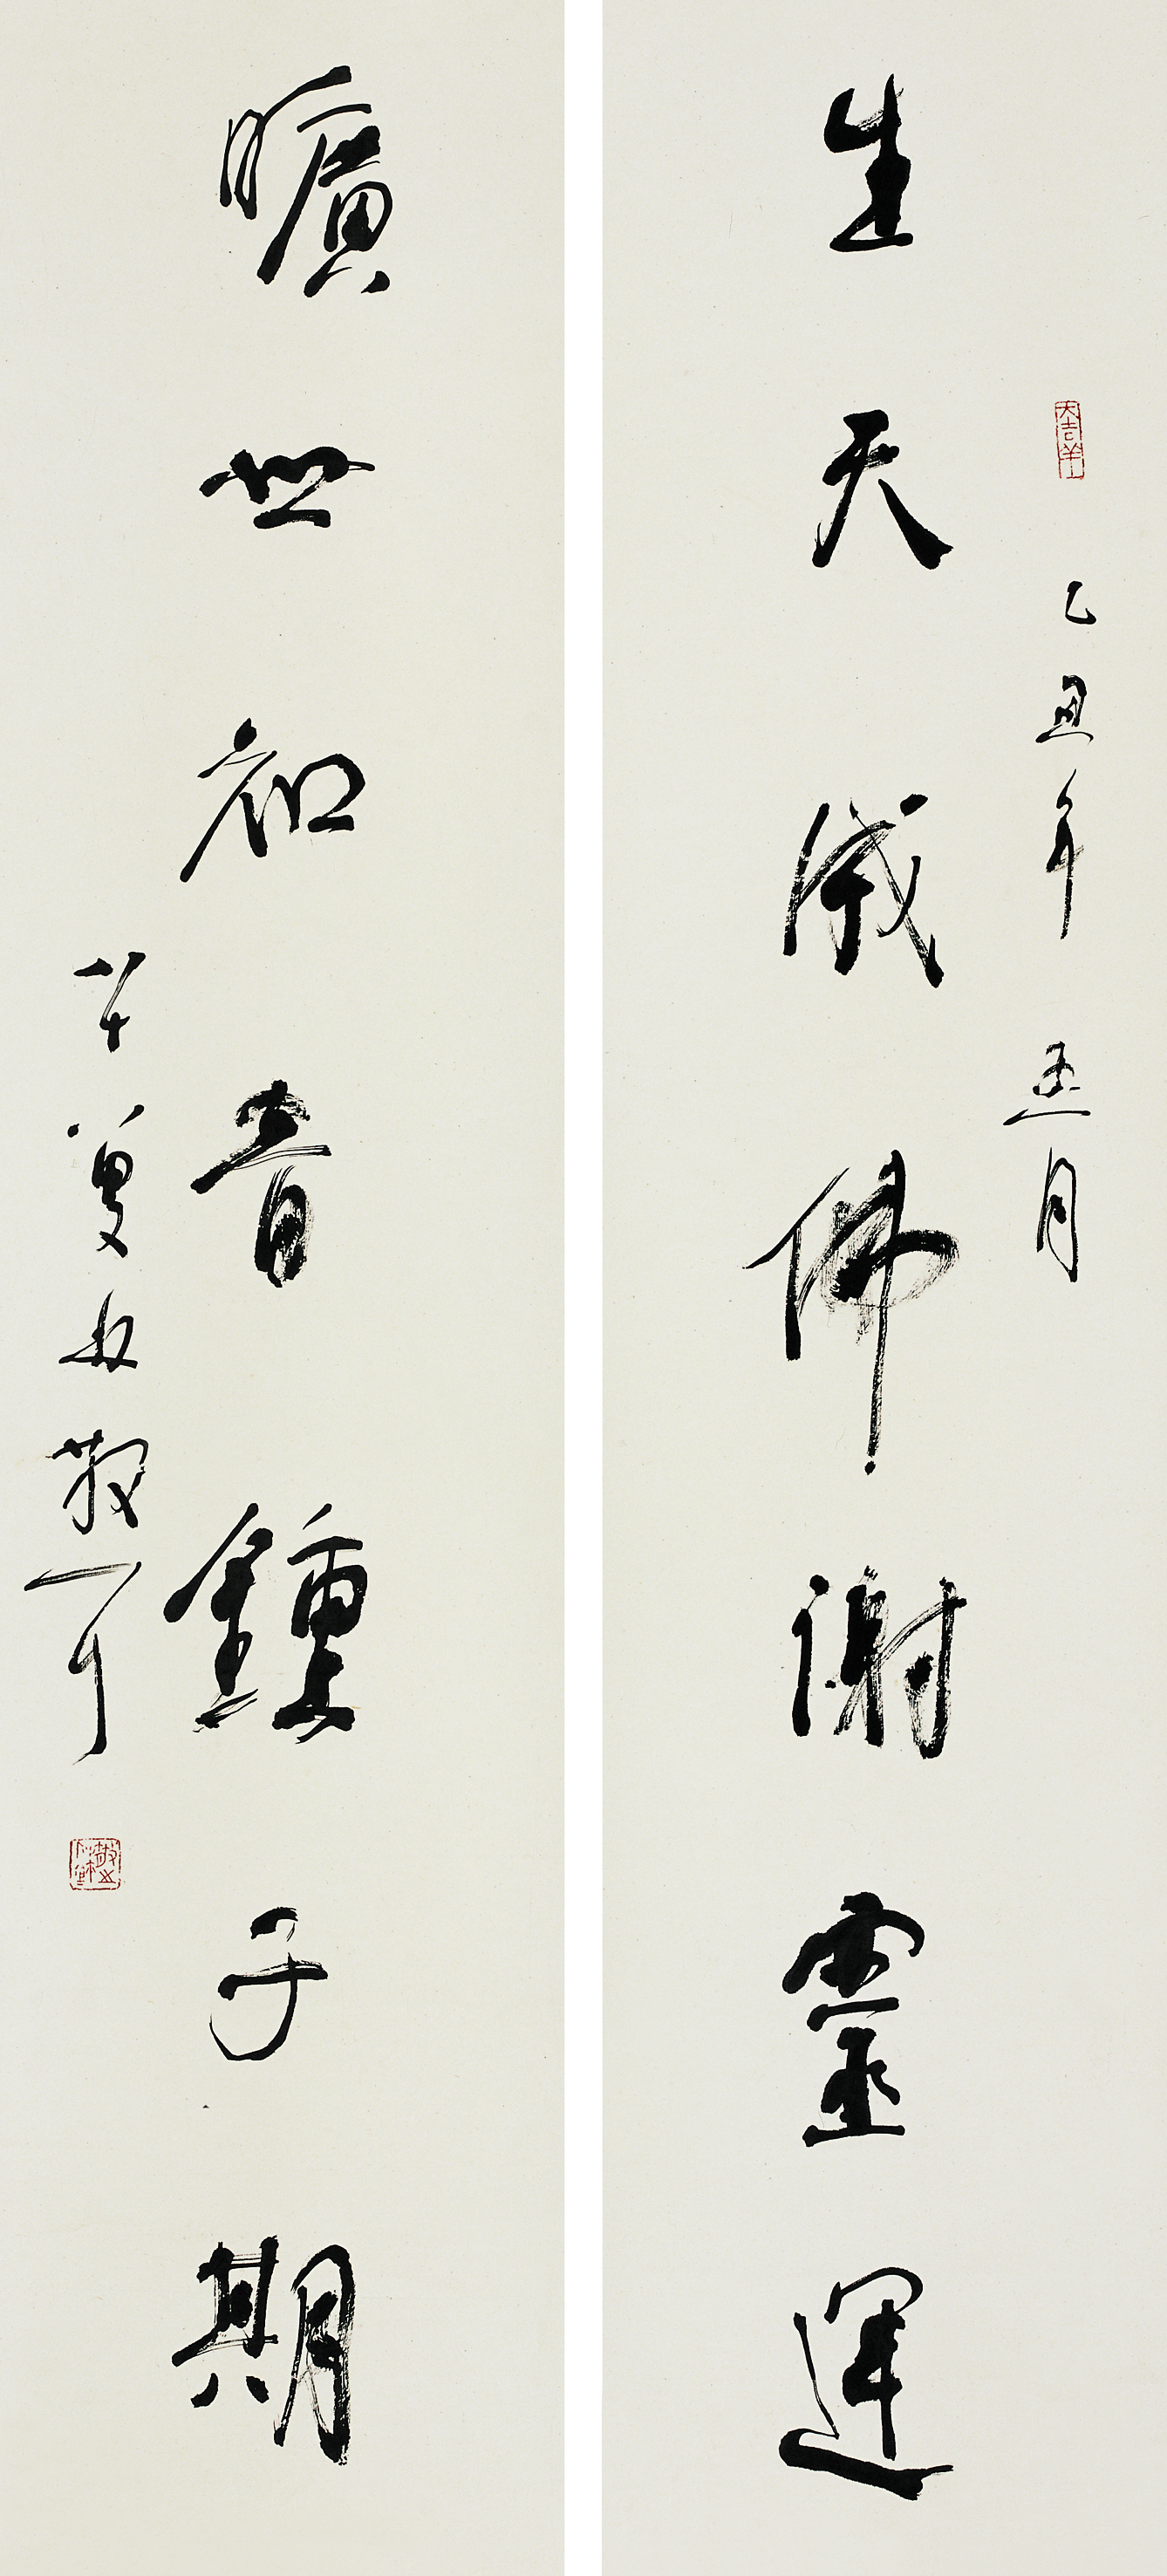 大吉羊
乙丑年五月
生天成佛謝靈運
曠世知音鍾子期
八十八叟林散耳